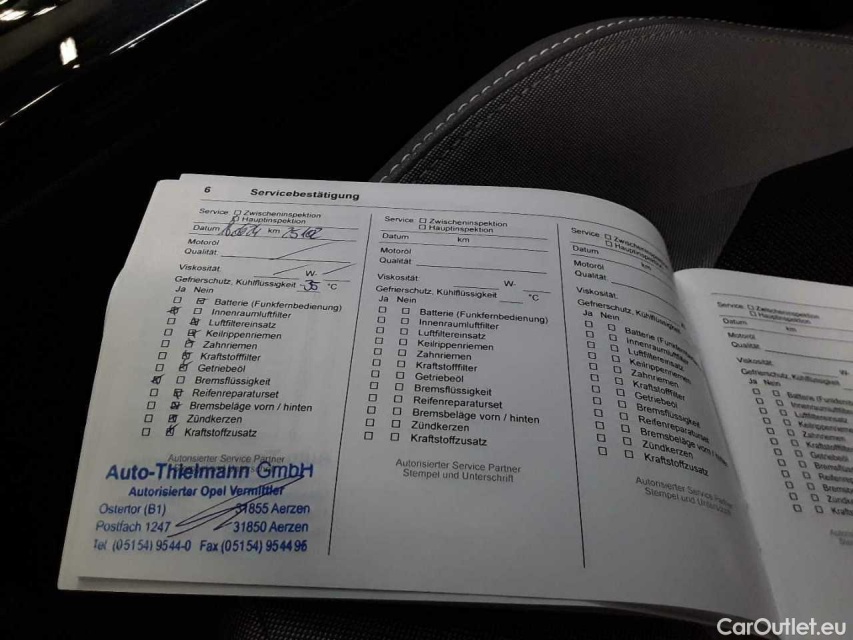 6 Servicebestätigung
Service: Zwischeninspektion
Hauptinspektion
Datum km
Motoröl
Qualität:
Viskosität: W-
Gefrierschutz, Kühlflüssigkeit -35 °C
Ja Nein
Batterie (Funkfernbedienung)
Innenraumluftfilter
Luftfiltereinsatz
Keilrippenriemen
Zahnriemen
Kraftstofffilter
Getriebeöl
Bremsflüssigkeit
Reifenreparaturset
Bremsbeläge vorn / hinten
Zündkerzen
Kraftstoffzusatz
Autorisierter Service Partner
Auto-Thielmann GmbH
Autorisierter Opel Vermittler
Ostertor (B1) 31855 Aerzen
Postfach 1247 31850 Aerzen
Tel (05154) 9544-0 Fax (05154) 954496
Service: Zwischeninspektion
Hauptinspektion
Datum km
Motoröl
Qualität:
Viskosität: W-
Gefrierschutz, Kühlflüssigkeit °C
Ja Nein
Batterie (Funkfernbedienung)
Innenraumluftfilter
Luftfiltereinsatz
Keilrippenriemen
Zahnriemen
Kraftstofffilter
Getriebeöl
Bremsflüssigkeit
Reifenreparaturset
Bremsbeläge vorn / hinten
Zündkerzen
Kraftstoffzusatz
Autorisierter Service Partner
Stempel und Unterschrift
Service: Zwischeninspektion
Hauptinspektion
Datum km
Motoröl
Qualität:
Viskosität:
Gefrierschutz, Kühlflüssigkeit
Ja Nein
Batterie
Innenraumluftfilter
Luftfiltereinsatz
Keilrippenriemen
Zahnriemen
Kraftstofffilter
Getriebeöl
Bremsflüssigkeit
Reifenreparaturset
Bremsbeläge vorn /
Zündkerzen
Kraftstoffzusatz
Autorisierter Service
Stempel und
Service: Zwischeninspektion
Hauptinspektion
Datum km
Motoröl
Qualität:
Viskosität: W-
Gefrierschutz, Kühlflüssigkeit
Ja Nein
CarOutlet.eu